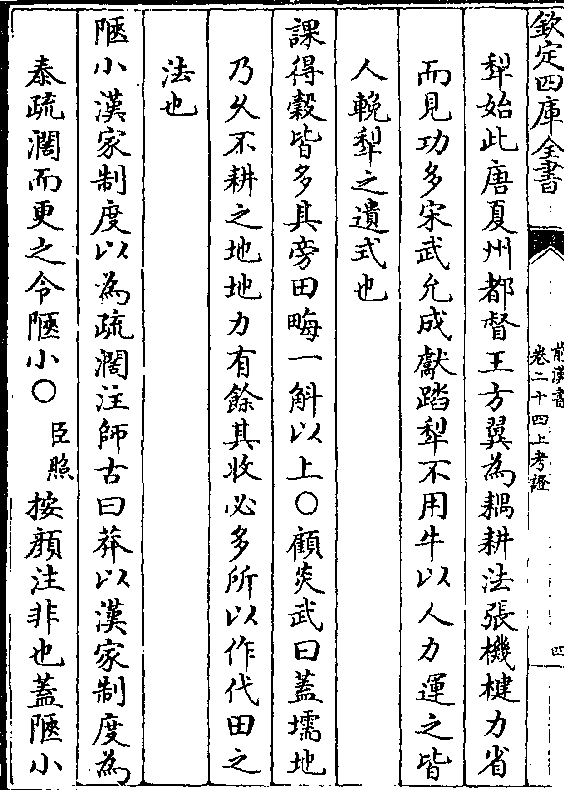 欽定四庫全書
前漢書
卷二十四上考證
四
犁始此唐夏州都督王方翼為耦耕法張機楗力省
而見功多宋武允成獻踏犁不用牛以人力運之皆
人輓犁之遺式也
課得穀皆多其旁田畮一斛以上〇顧炎武曰蓋壖地
乃久不耕之地地力有餘其收必多所以作代田之
法也
陿小漢家制度以為疏濶注師古曰莽以漢家制度為
泰疏濶而更之令陿小〇臣照按顔注非也蓋陿小